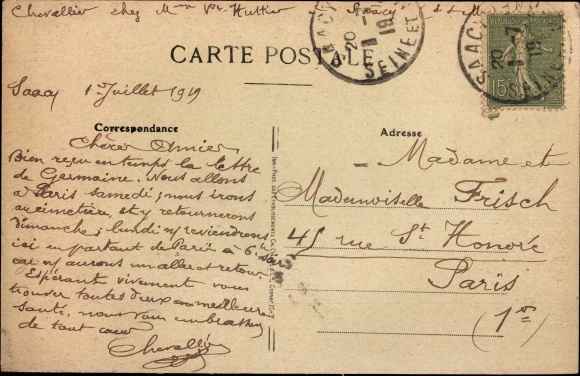 Chevallier chez Mme Vve Huttier Saacy (S & M
CARTE POSTALE
SAACY
20
1-7
19
SEINE ET
SAACY
20
1-7
19
SEINE ET
REPUBLIQUE FRANÇAISE
15
Saacy 1er Juillet 1919
Correspondance
Chères Amies
Bien reçu en temps la lettre
de Germaine. Nous allons
à Paris samedi; nous irons
au cimetière et y retournerons
dimanche; lundi n/ reviendrons
ici en partant de Paris à 6h soir
car n/ aurons un aller et retour.
Espérant vivement vous
trouver toutes deux en meilleure
santé, nous vous embrassons
de tout cœur
Chevallier
Adresse
Madame et
Mademoiselle Frisch
45 rue St Honoré
Paris
(1er)